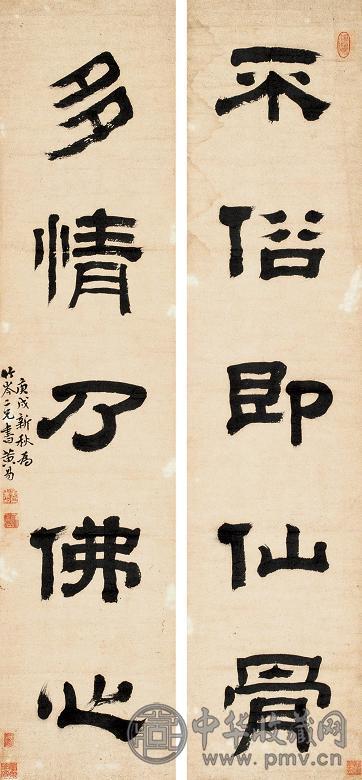 不俗即仙骨
多情乃佛心
庚戌新秋為
竹岑二兄書 黄易
中华收藏网
www.pmv.cn